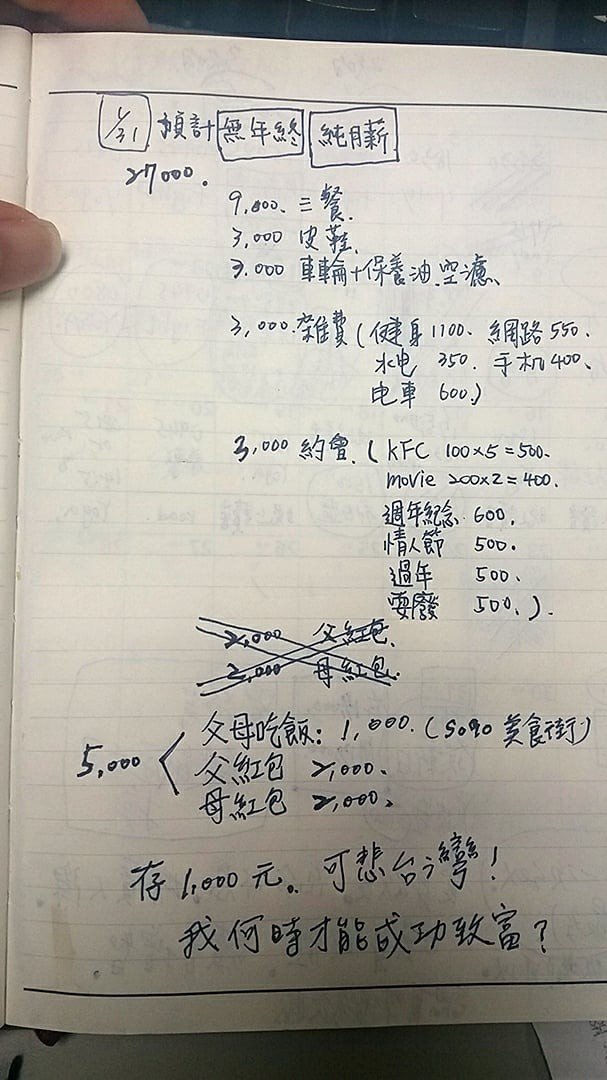 1/31 預計 無年終 純月薪
27000.
9,000. 三餐.
3,000 皮鞋.
3.000 車輪+保養油.空濾、
3,000.雜費(健身1100. 網路550.
水电 350. 手机400、
电車 600.)
3,000 約會.( KFC 100x5=500.
movie 200x2=400.
週年紀念 600.
情人節 500.
過年 500、
耍廢 500、).
2,000 父紅包.
2,000 母紅包.
父母吃飯: 1,000.(sogo 美食街)
5,000 < 父紅包 2,000、
母紅包 2,000、
存 1,000 元。可悲台灣!
我何時才能成功致富?